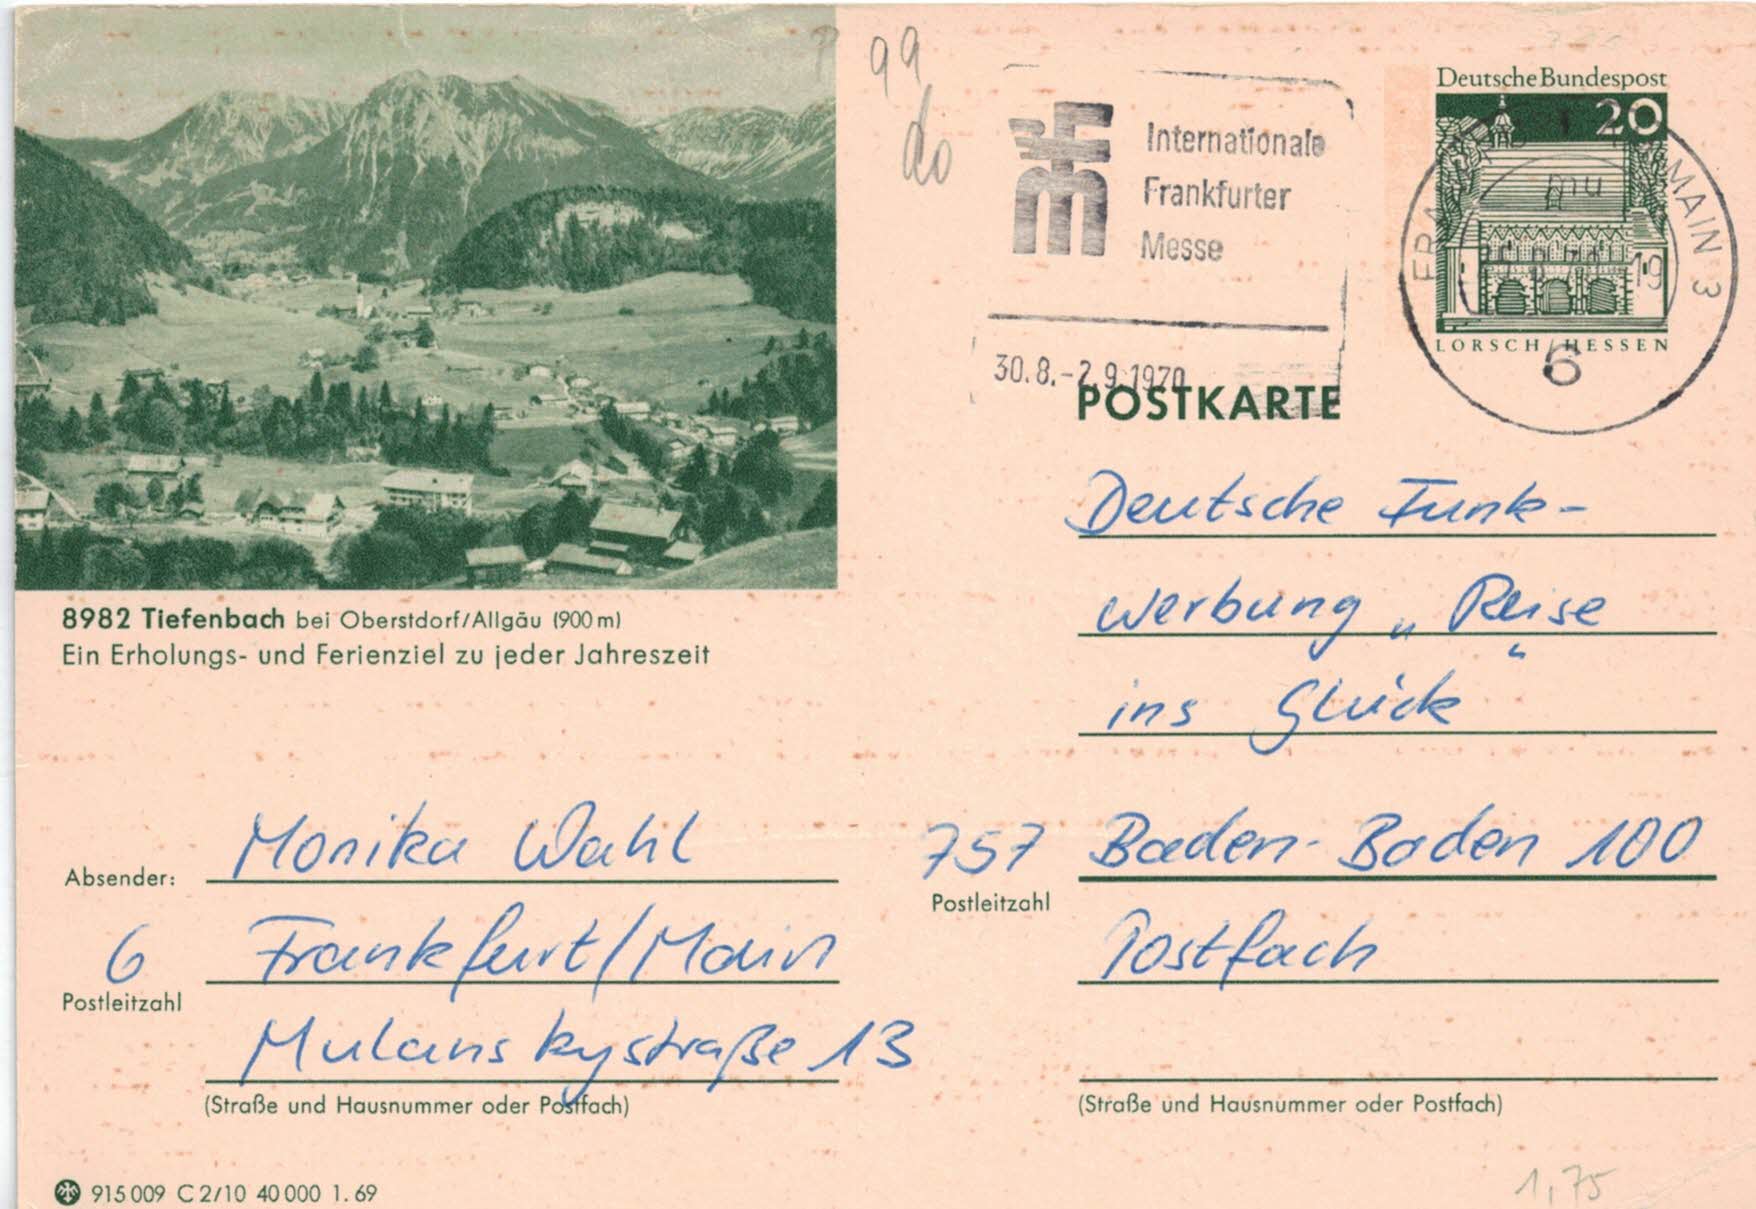 99
Internationale
Frankfurter
Messe
30.8.-2.9.1970
Deutsche Bundespost
20
LORSCH/HESSEN
MAIN 3
19
6
POSTKARTE
8982 Tiefenbach bei Oberstdorf/Allgäu (900 m)
Ein Erholungs- und Ferienziel zu jeder Jahreszeit
Deutsche Funk-
werbung „Reise
ins Glück“
757 Baden-Baden 100
Postleitzahl
Postfach
(Straße und Hausnummer oder Postfach)
Absender: Monika Wahl
6 Frankfurt/Main
Postleitzahl
Mulanskystraße 13
(Straße und Hausnummer oder Postfach)
915 009 C 2/10 40 000 1. 69
1,75